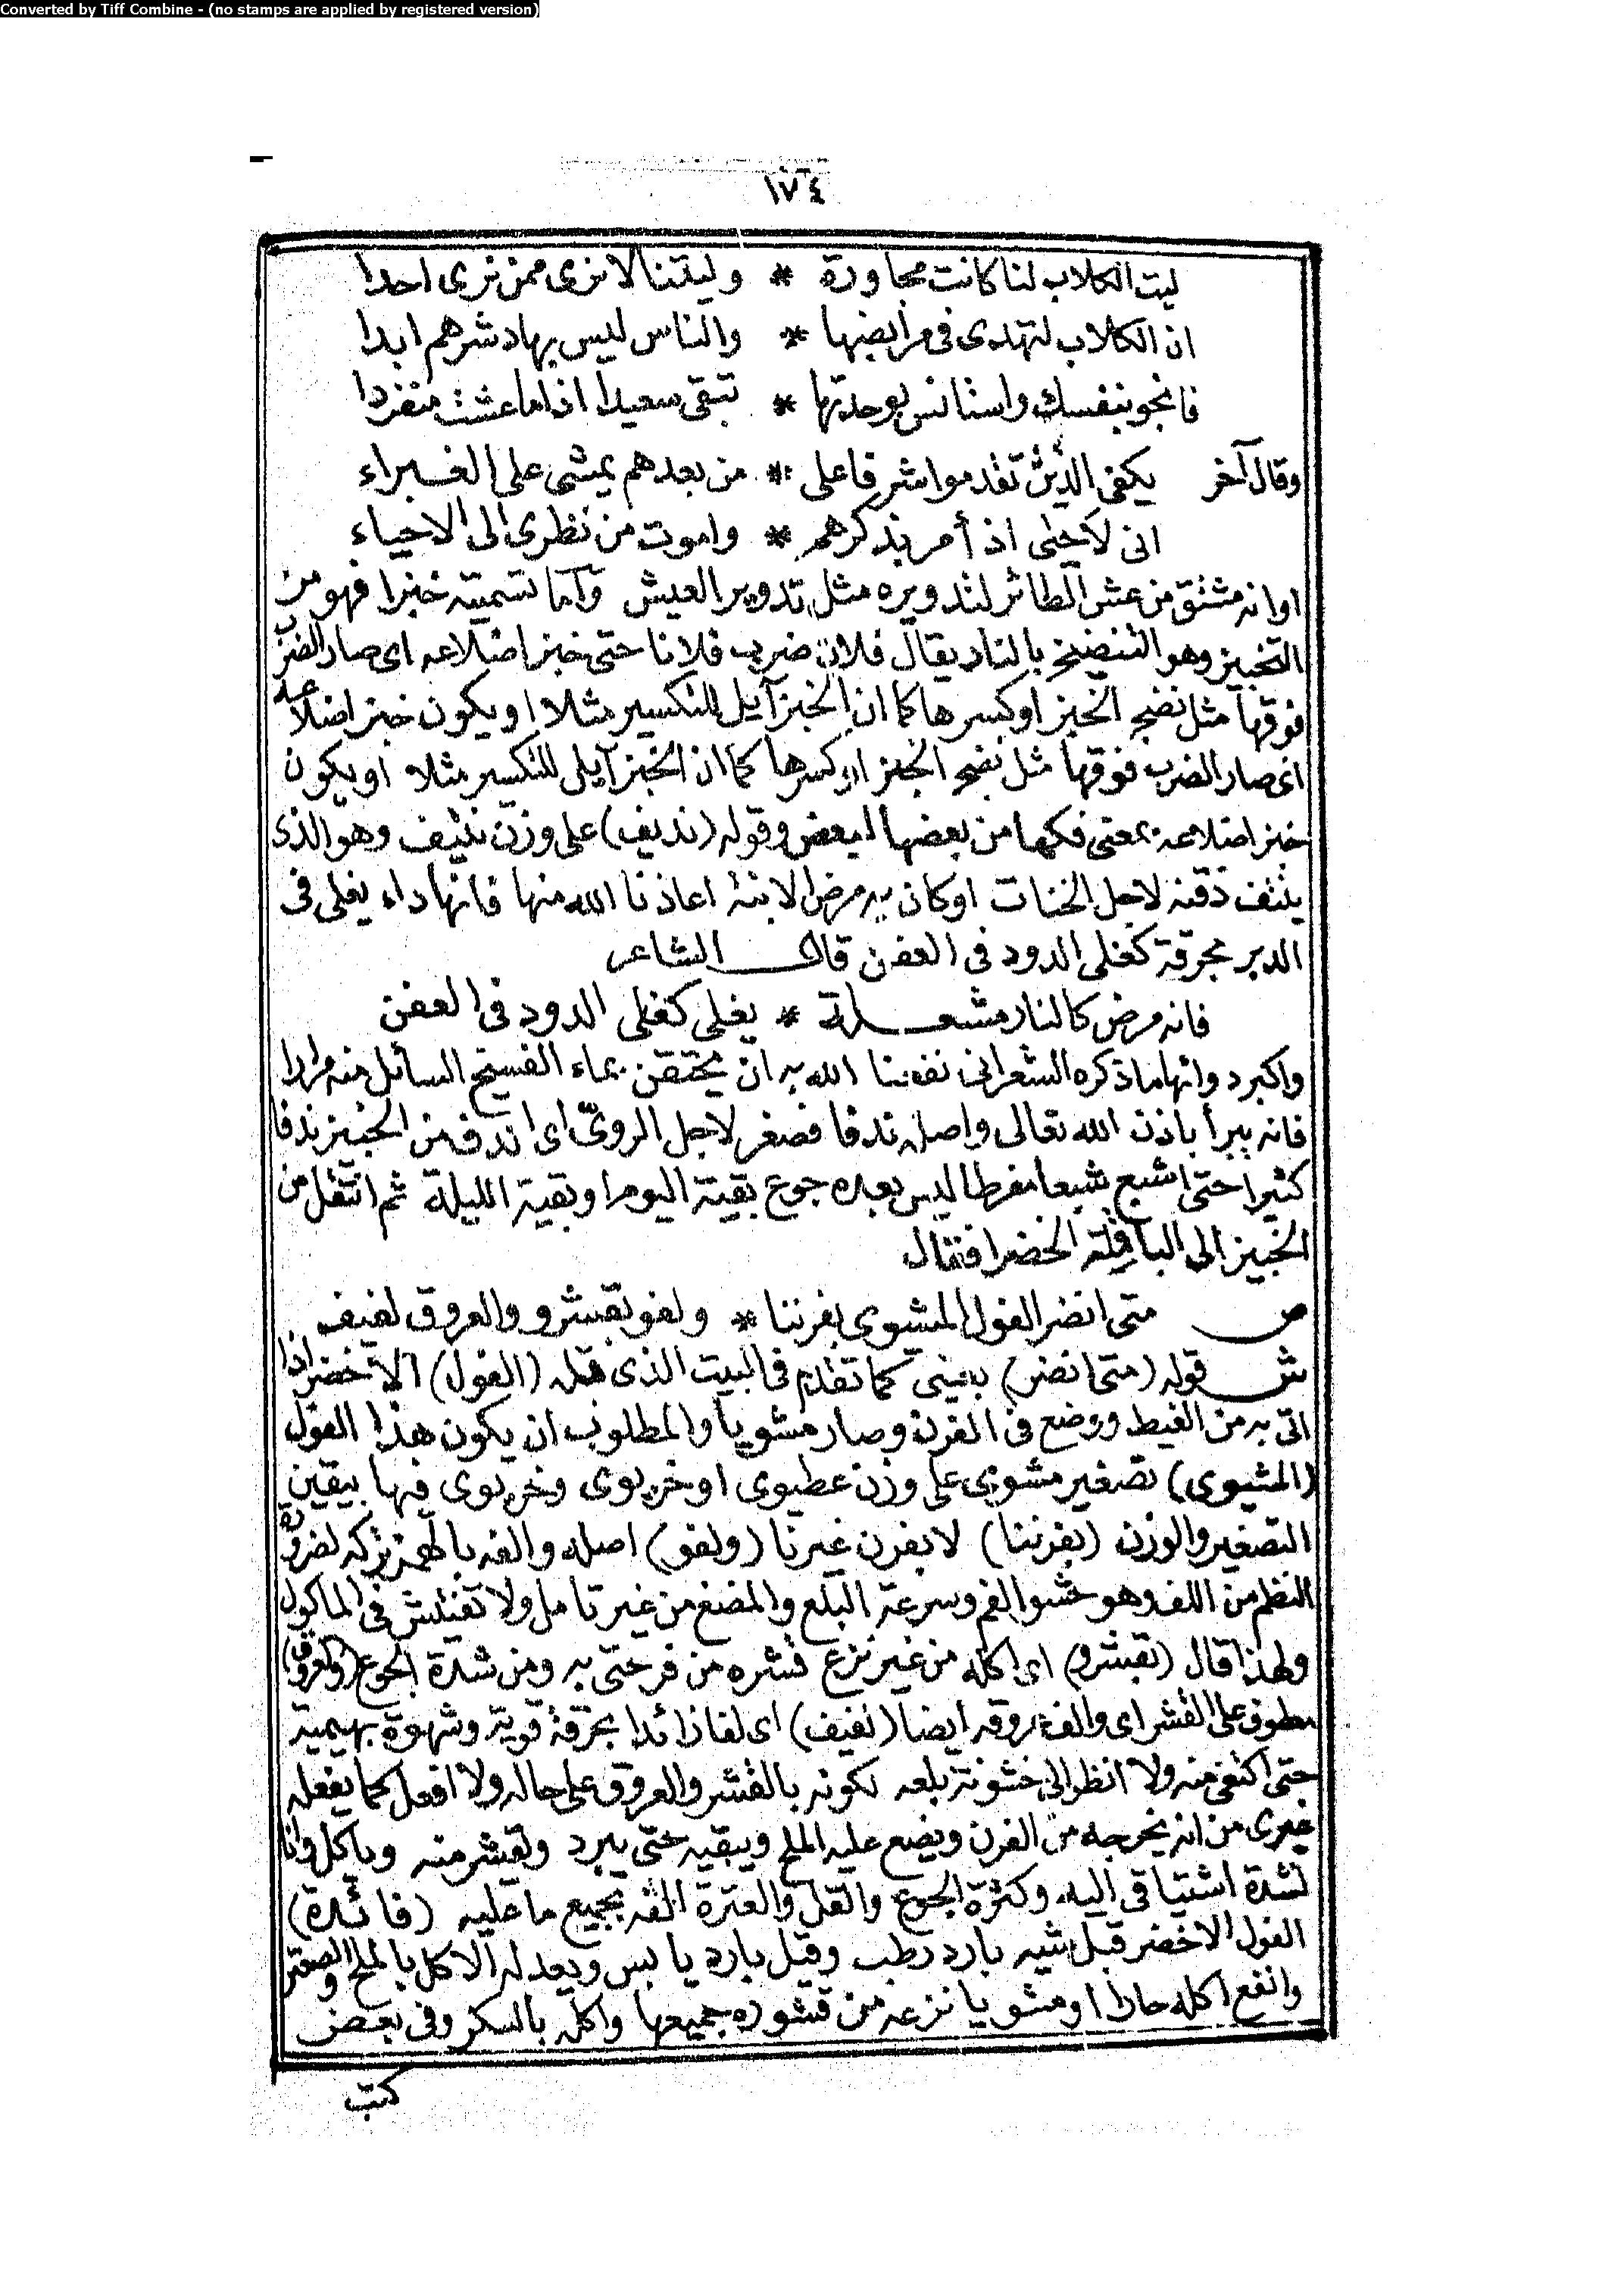 Converted by Tiff Combine - (no stamps are applied by registered version)
١٧٤
ليت الكلاب لنا كانت مجاورة * وليتنا لا نرى ممن نرى احدا
ان الكلاب لتهدى فى مرابضها * والناس ليس بهاد شرهم ابدا
فانجو بنفسك واستانس بوحدتها * تبقى سعيدا اذا ما عشت منفردا
وقال آخر يكفى الذين تقدموا شرفا على * من بعدهم يمشى على الغبراء
انى لاحيى اذ أمر بذكرهم * واموت من نظرى الى الاحياء
اوانه مشتق من عش الطائر لتدويره مثل تدوير العيش وآما تسميته خبزا فهو من
التخبيز وهو التنضيج بالنار يقال فلان ضرب فلانا حتى خبز اضلاعه اى صار الضرب
فوقها مثل نضج الخبز او كسرها كما ان الخبز آيل للتكسير مثلا او يكون خبز اضلاعه
اى صار الضرب فوقها مثل نضج الخبز او كسرها كما ان الخبز آيل للتكسير مثلا او يكون
خبز اضلاعه بمعنى فكها من بعضها لبعض وقوله (نديف) على وزن نتيف وهو الذى
ينتف ذقنه لاجل الخنات او كان به مرض الابنة اعاذنا الله منها فانها داء يغلى فى
الدبر بحرقة كغلى الدود فى العفن قال الشاعر
فانه مرض كالنار مشعلة * يغلى كغلى الدود فى العفن
واكبر دوائها ما ذكره الشعرانى نفعنا الله به ان يحتقن بماء الفسيخ السائل منه مرارا
فانه يبرأ باذن الله تعالى واصله ندفا فصغر لاجل الروىّ اى اندف من الخبيز ندفا
كثيرا حتى اشبع شبعا مفرطا ليس بعده جوع بقية اليوم او بقية الليلة ثم انتقل من
الخبيز الى الباقلة الخضرا فقال
ص متى انضر الفول المشيوى بفرننا * ولفو بقشرو والعروق لفيف
ش قوله (متى انضر) بعينى كما تقدم فى البيت الذى قبله (الفول) الاخضر اذا
اتى به من الغيط ووضع فى الفرن وصار مشويا والمطلوب ان يكون هذا الفول
(المشيوى) تصغير مشوى على وزن عطيوى او خريوى وخريوى فيها بيقين
التصغير والوزن (بفرننا) لا بفرن غيرنا (ولفو) اصله والفه بالهمز تركه لضرورة
النظم من اللف وهو حشو الفم وسرعة البلع والمضغ من غير تامل ولا تفتيش فى الماكول
ولهذا قال (بقشرو) اى اكله من غير نزع قشره من فرحتى به ومن شدة الجوع (والعروق)
معطوف على القشر اى والف بعروقه ايضا (لفيف) اى لفا زائدا بحرقة قوية وشهوة بهيمية
حتى اكتفى منه ولا انظر الى خشونة بلعه لكونه بالقشر والعروق على حاله ولا افعل كما يفعله
غيرى من انه يخرجه من الفرن ويضع عليه الملح ويبقيه حتى يبرد ويقشر منه وياكل وانا
لشدة اشتياقى اليه وكثرة الجوع والقل والعترة الفه بجميع ما عليه (فائدة)
الفول الاخضر قبل شيه بارد رطب وقيل بارد يابس ويعدله الاكل بالملح والصعتر
وانفع اكله حارا او مشويا نزعه من قشوره جميعها واكله بالسكر وفى بعض
كتب